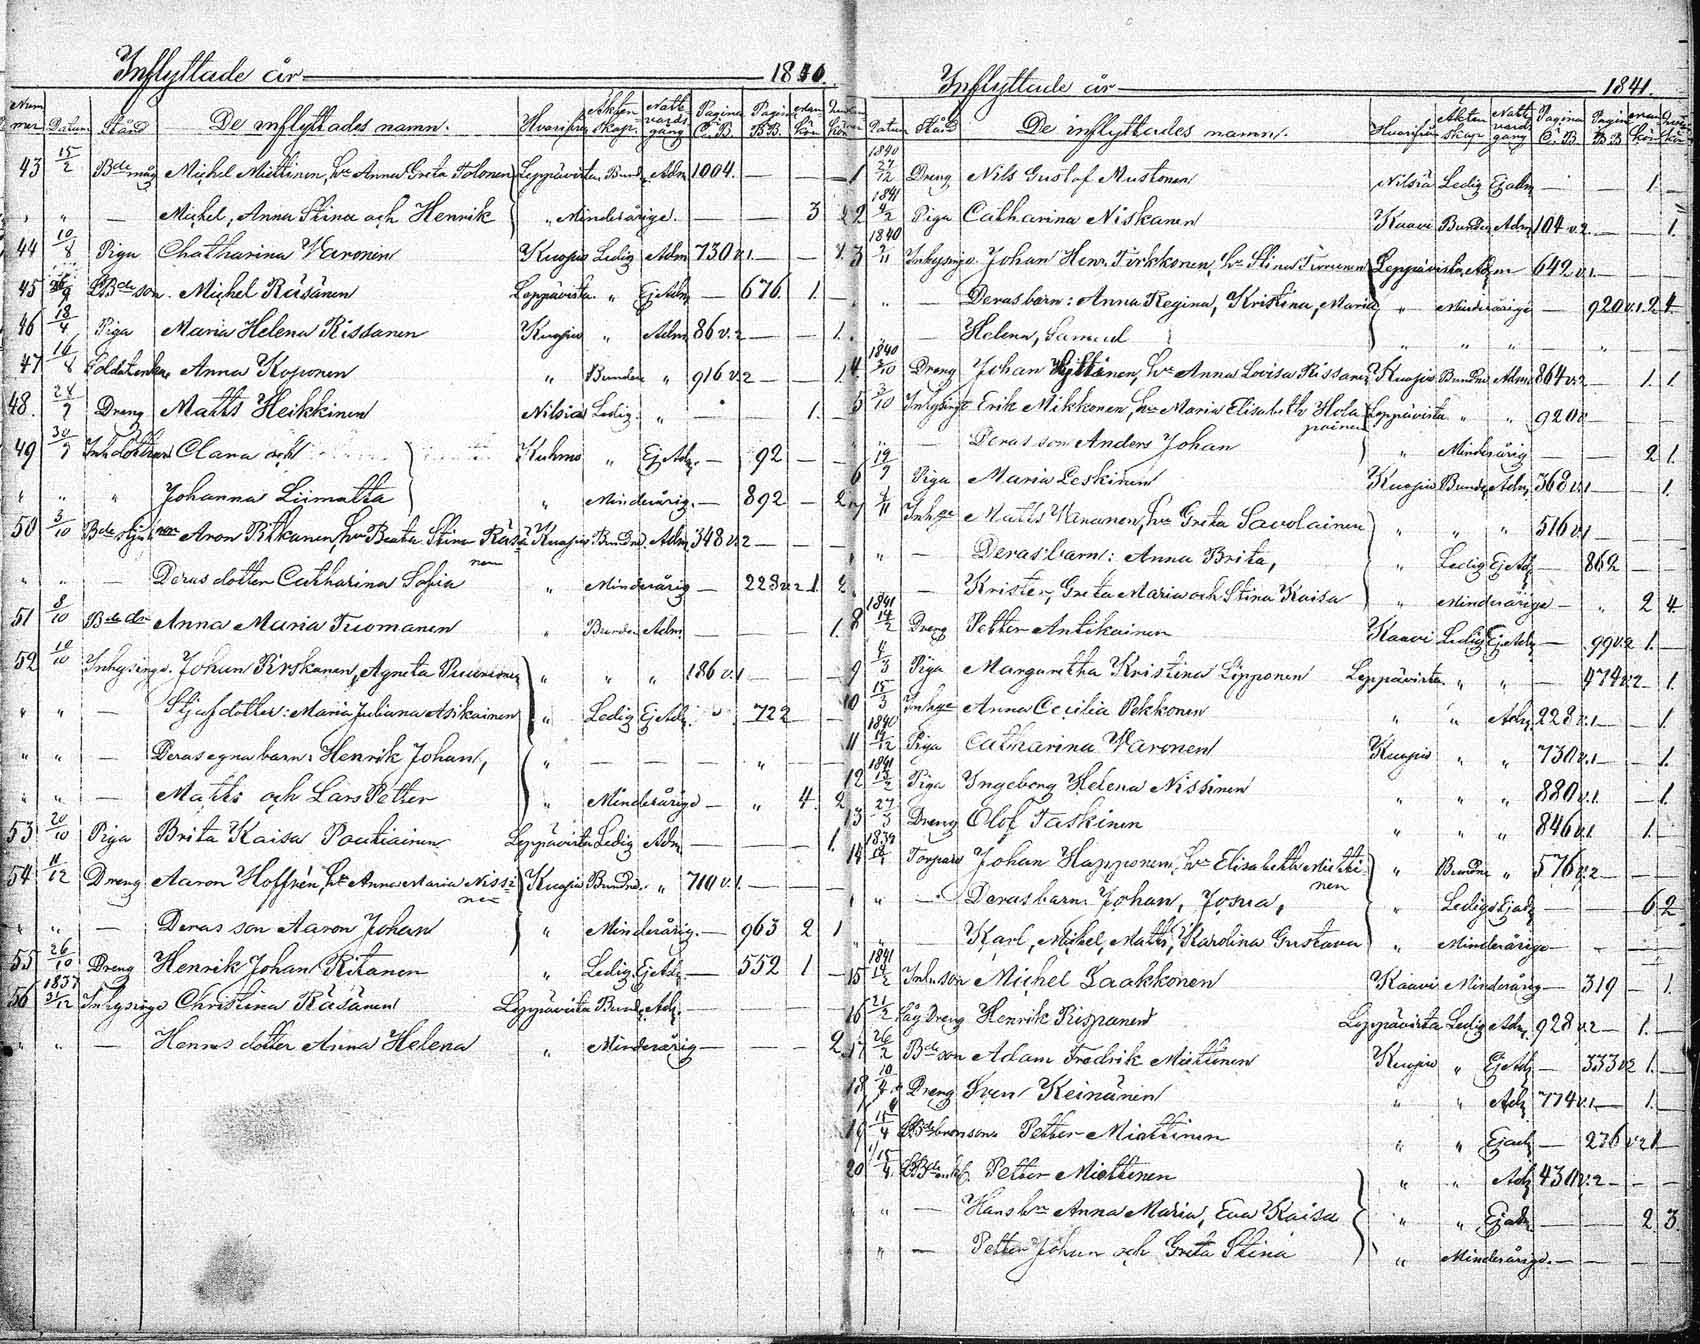 Inflyttade år 1840.
Nummer Datum Stånd De inflyttades namn. Hvarifrån Äktenskap. Nattvardsgång Pagina C.B. Pagina B.B. Mankön Qvinkön
43 15/2 Bde måg Michel Miettinen, hu Anna Greta Tolonen Leppävirta Bund. Adm 1004. — — —
" " — Michel, Anna Stina och Henrik " Minderårige. — — 3 2
44 10/8 Piga Chatharina Varonen Kuopio Ledig Adm 730 v.1 — — 1.
45 Bde son. Michel Räsänen Leppävirta " Ej Adm — 676 1. —
46 18/4 Piga Maria Helena Rissanen Kuopio " Adm 86 v.2 — — 1.
47 16/8 Soldatenka Anna Koponen " Bunden " 916 v.2 — — 1.
48. 24/7 Dreng Matts Heikkinen Nilsiä Ledig " — — 1. —
49 30/7 Inh dottren Clara och Kuhmo " Ej Adm. — 92 — —
" " " Johanna Liimatta " Minderårig. — 892 — 2
50 3/10 Aron Pitkänen, hu Beata Stina Räsä Kuopio Bundne. Adm 348 v.2 — — —
nen
" " — Deras dotter Catharina Sofia " Minderårig — 228 v.2 1. 2.
51 8/10 Anna Maria Tuomanen " Bunden Adm — — — 1.
52 10/10 Inhysinge. Johan Pirskanen, Agneta " " " 186 v.1 — — —
" " — Stjufdotter: Maria Juliana Asikainen " Ledig Ej Adm. " 722 — —
" " — Deras egna barn: Henrik Johan, " — — — " — —
" " — Matts och Lars Petter " Minderårige — " 4. 2
53 20/10 Piga Brita Kaisa Poutiainen Leppävirta Ledig Adm — — — 1.
54 11/12 Dreng Aaron Hoffrén, hu Anna Maria Nissi Kuopio Bundne. " 710 v.1. — — —
nen
" " — Deras son Aaron Johan " Minderårig. — 963 2 1
55 26/10 Dreng Henrik Johan Ritanen " Ledig Ej Adm — 552 1 —
56 1837 31/12 Inhysinge Christina Räsänen Leppävirta Bund. Adm. — — — —
" " — Hennes dotter Anna Helena " Minderårig — — — 2
Inflyttade år 1841.
Datum Stånd De inflyttades namn. Hvarifrån Äktenskap Nattvardsgång Pagina C.B. Pagina B.B. Mankön Qvinkön
1 1840 27/12 Dreng Nils Gustaf Mustonen Nilsiä Ledig Ej adm — — 1. —
2 1841 4/2 Piga Catharina Niskanen Kaavi Bunden Adm 104 v.2. — — 1.
3 1840 2/11 Inhysinge Johan Henr. Tirkkonen, hu Stina Leppävirta Adm 642 v.1. — — —
" " — Deras barn: Anna Regina, Kristina, Maria " Minderårige — 920 v.1. 2 4.
— Helena, Samuel " " " — " — —
4 1840 3/10 Dreng Johan Hyttinen, hu Anna Lovisa Rissanen Kuopio Bundne Adm 864 v.2 — 1. 1
5 3/10 Inhysinge Erik Mikkonen, hu Maria Elisabeth Hola Leppävirta " " 920 v. — — —
painen
" — Deras son Anders Johan " Minderårig — — 2 1.
6 19/7 Piga Maria Leskinen Kuopio Bunden Adm 368 v.1 — — 1.
7 Inhge Matts Väänänen, hu Greta Savolainen " " " 516 v.1 — — —
" " — Deras barn: Anna Brita, " Ledig Ej Ad — 862 — —
— Krister, Greta Maria och Stina Kaisa " Minderårige — " 2 4
8 1841 14/2 Dreng Petter Antikainen Kaavi Ledig Ej Adm — 99 v.2 1. —
9 4/3 Piga Margaretha Kristina Lipponen Leppävirta " " — 474 v.2 — 1.
10 15/3 Inhge Anna Cecilia Pekkonen " " Adm. 228 v.1 — — 1.
11 1840 Piga Catharina Varonen Kuopio " " 730 v.1 — — 1.
12 1841 13/2 Piga Ingeborg Helena Nissinen " " " 880 v.1. — — 1.
13 27/3 Dreng Olof Taskinen " " " 846 v.1 — 1. —
14 1839 Torpare Johan Happonen, hu Elisabeth Mietti " Bundne " 576 v.2 — — —
nen
" " — Deras barn: Johan, Josua, " Ledige Ej ad — — 6 2
" — Karl, Michel, Matts, Karolina Gustava " Minderårige — — — —
15 1841 14/2 Inh. son Michel Laakkonen Kaavi Minderårig — 319 — 1.
16 21/2 Dreng Henrik Rispanen Leppävirta Ledig Adm. 928 v.2 — 1. —
17 26/2 Bde son Adam Fredrik Miettinen Kuopio " Ej Adm — 333 v.2 1. —
18 10/4 Dreng Sven Keinänen " " Adm 774 v.1 — 1. —
19 15/4 Petter Miettinen " " Ej adm — 276 v.2 1. —
20 15/4 Petter Miettinen " " Adm 430 v.2 — — —
" — Hans hu Anna Maria, Eva Kaisa " " Ej adm — — 2. 3.
" — Petter Johan och Greta Stina " Minderårige. — — — —